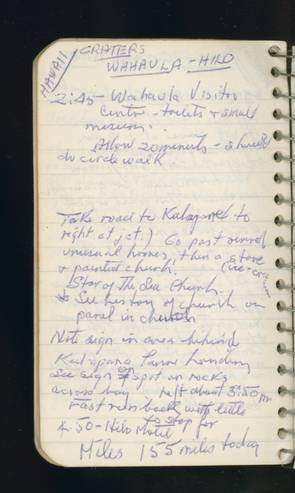 HAWAII
CRATERS
WAHAULA - HILO
2:45 - Wahaula Visitor
Centre - toilets & small
museum.
Allow 20 minutes - should
do circle walk
Take road to Kalapana (to
right at jct.) Go past several
unusual homes, then a store
& painted church. (ice-cream
Star of the Sea Church.
& See history of church on
panel in church
Note sign in area behind
Kalapana
See sign & spot on rocks
across bay left about 3:50 pm
Fast run back with little
to stop for
4:50 - Hilo Motel
Miles 155 miles today